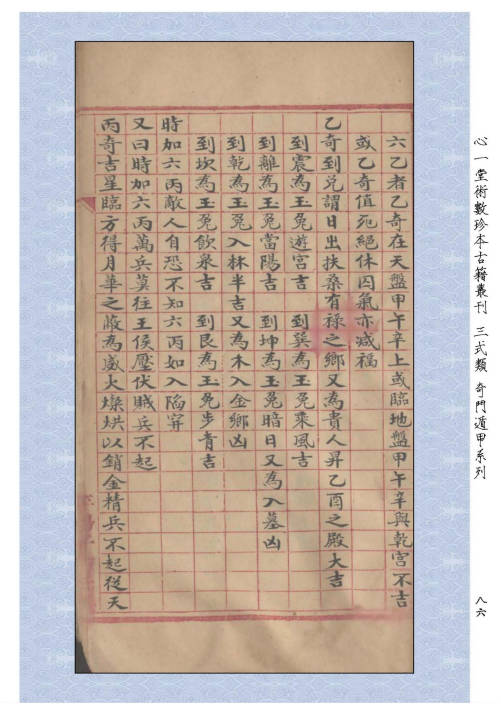 心一堂術數珍本古籍叢刊 三式類 奇門遁甲系列
八六
六乙者乙奇在天盤甲午辛上或臨地盤甲午辛與乾宮不吉
或乙奇值死絕休囚氣亦减福
乙奇到兌謂日出扶桑有祿之鄉又為貴人昇乙酉之殿大吉
到震為玉兔遊宮吉 到巽為玉兔乘風吉
到離為玉兔當陽吉 到坤為玉兔暗日又為入墓凶
到乾為玉兔入林半吉又為木入金鄉凶
到坎為玉兔飲泉吉 到艮為玉兔步青吉
時加六丙敵人自恐不知六丙如入陷穽
又曰時加六丙萬兵莫往王侯壓伏賊兵不起
丙奇吉星臨方得月華之蔽為威火燥烘以銷金精兵不起從天